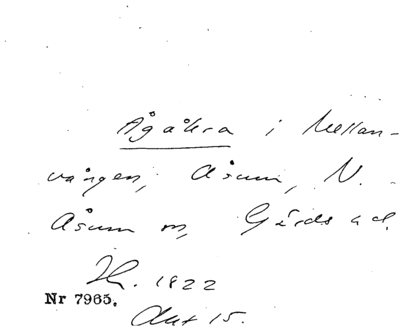 Ågåkra i Mellan-
vången, Åsum, N.
Åsum sn, Gärds hd.
1822
Nr 7965.
Akt 15.